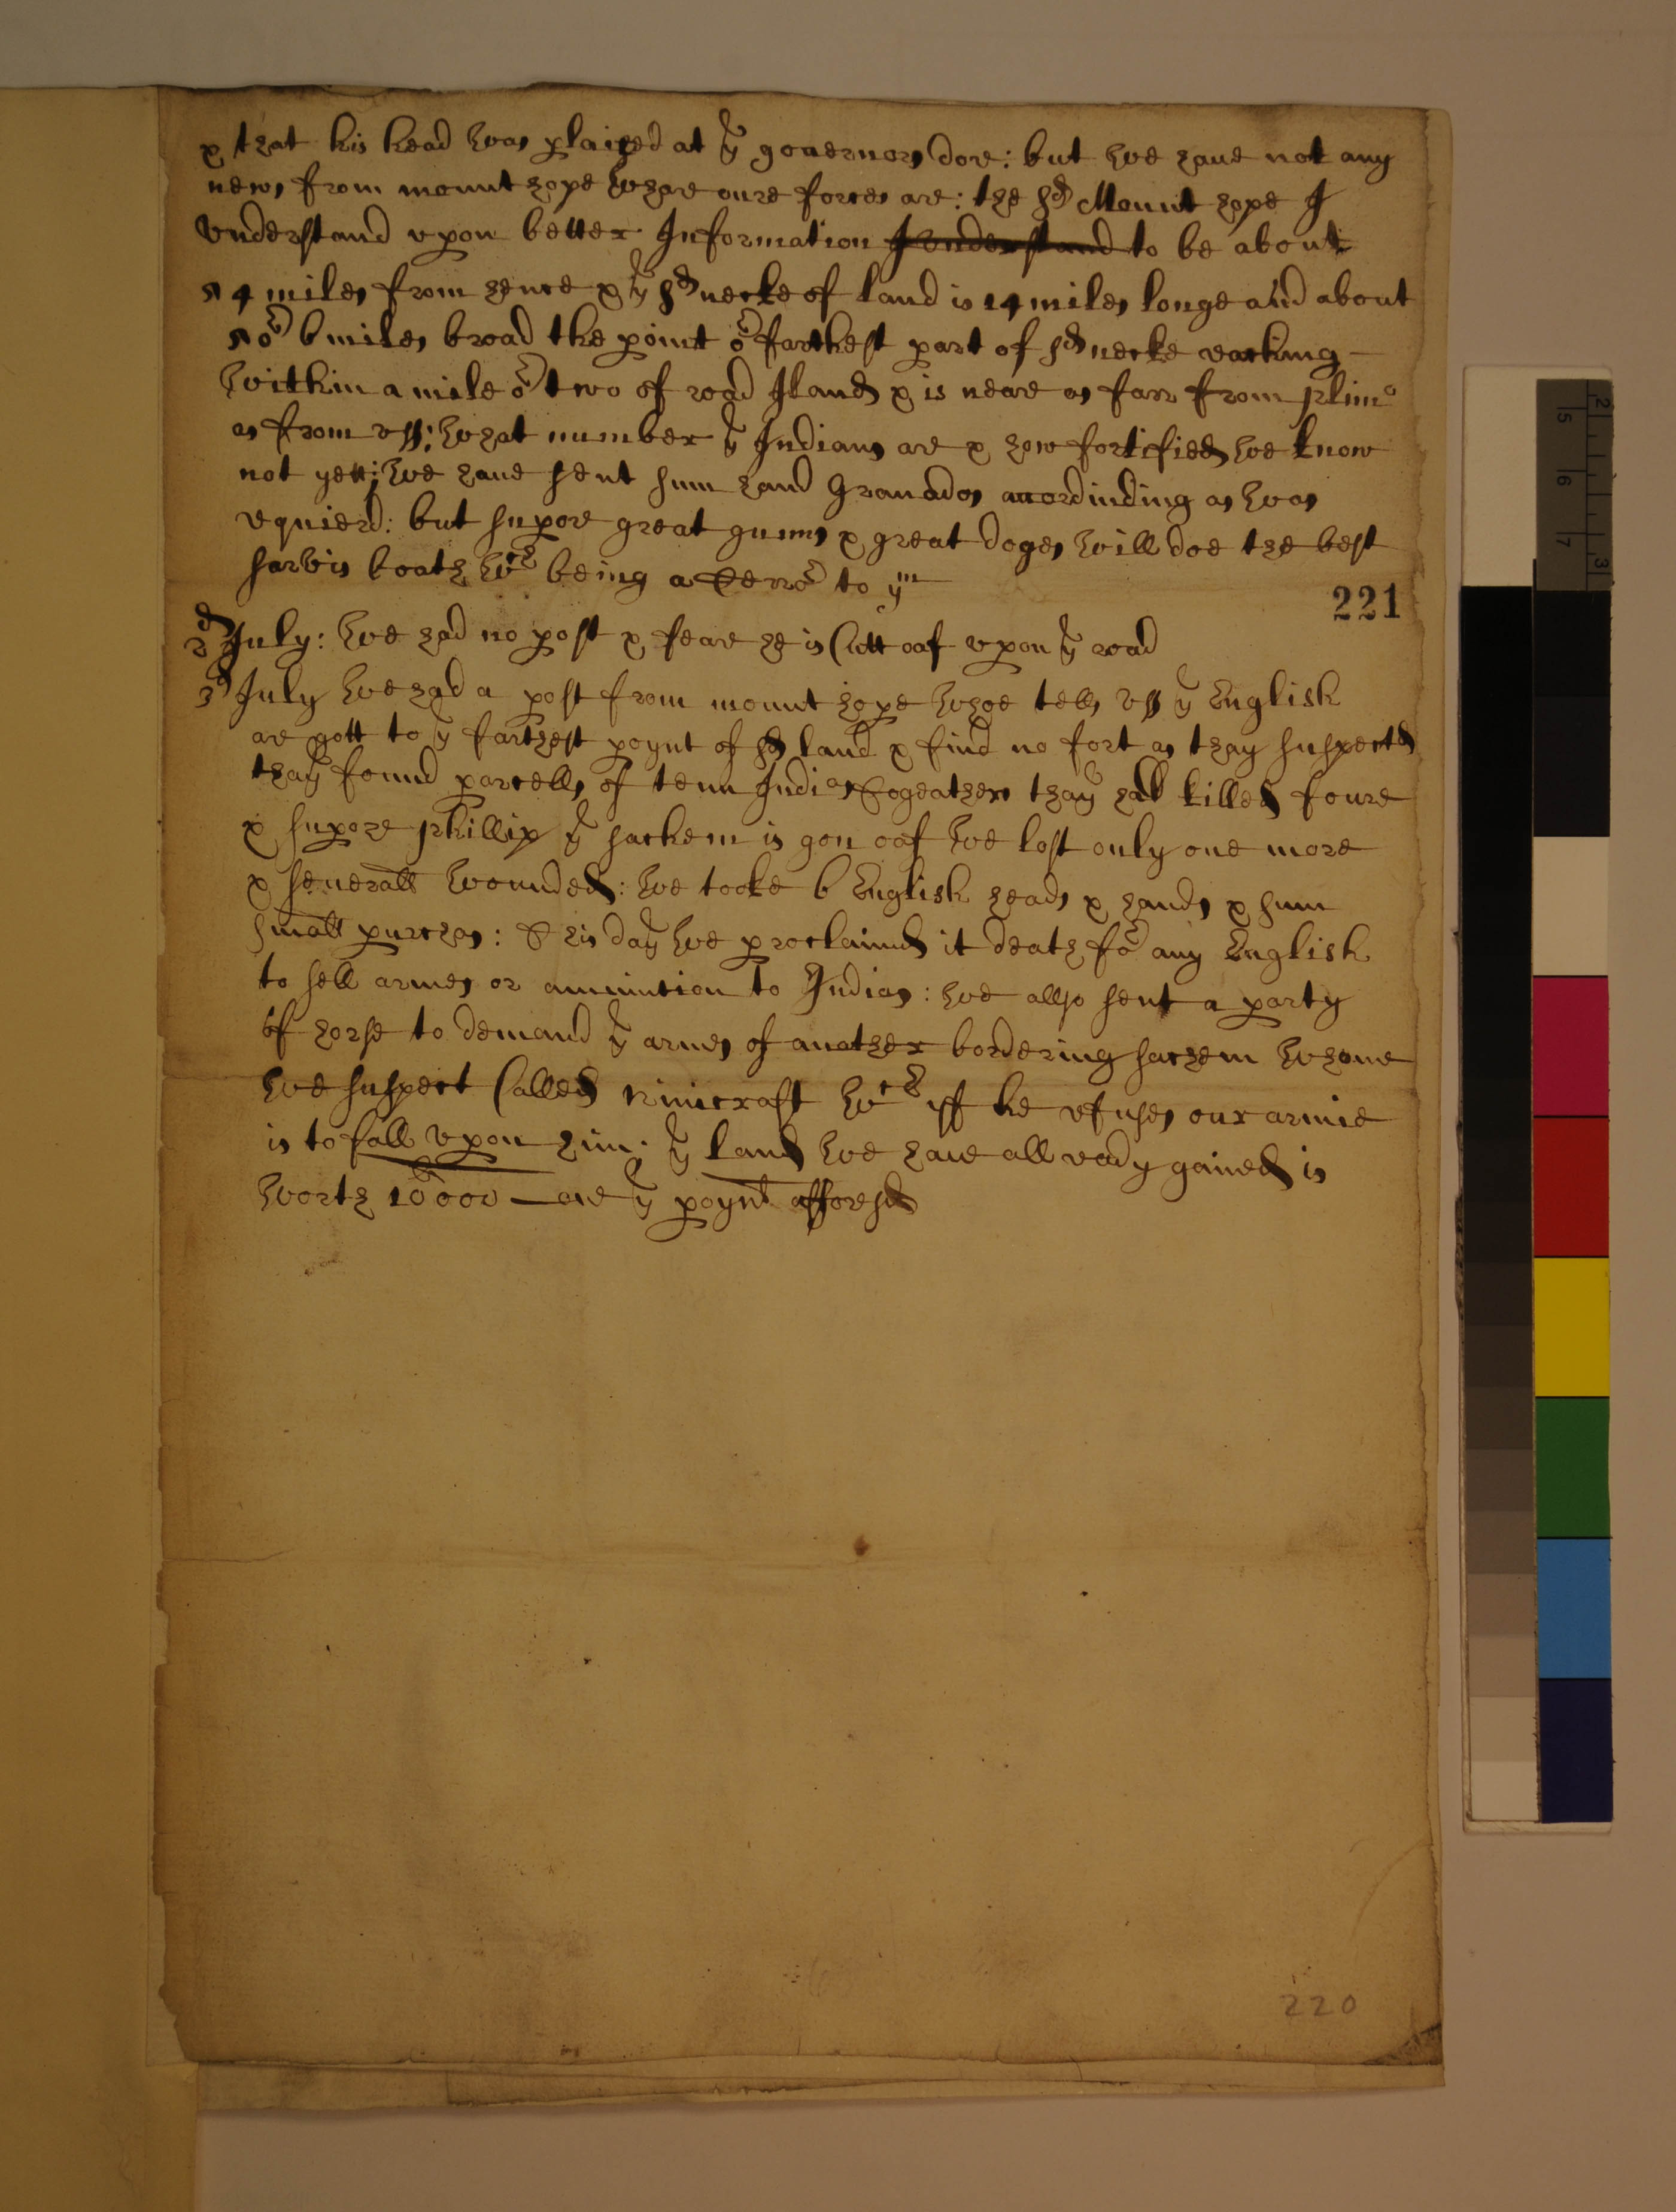 & that his head was plaiced at ye governors dore: but we haue not any
news from mount hope whare oure forces are: the sd Mount hope I
vnderstand vpon better Information I vnderstand to be about
54 miles from hence & ye sd necke of land is 14 miles longe and about
5 or 6 miles broad the point or farthest part of sd necke reaching
within a mile or two of road Iland & is neare as farr from plimo
as from vss: what number ye Indians are & how fortified we know
not yett: we haue sent sum hand Granados accordinding as was
requierd: but supose great gunns & great doges will doe the best
sarvis boath wch being a terror to ym
221
2d July: we had no post & feare he is Cutt oaf vpon ye road
3d July we had a post from mount hope whoe tells vss ye English
are gott to ye farthest poynt of sd land & find no fort as thay suspected
thay found parcells of tenn Indias togeather thay had killed foure
& supose phillip ye sachem is gon oaf we lost only one more
& seuerall wounded: we tooke 6 English heads & hands & sum
small purchas: this day we proclaimd it death for any English
to sell armes or amunition to Indias: we allso sent a party
of horse to demand ye armes of another bordering sachem whome
we suspect Called Ninicraft wch iff he refuses our armie
is to fall vpon him: ye land we haue all ready gained is
worth 10000 are ye poynt afforesd
220